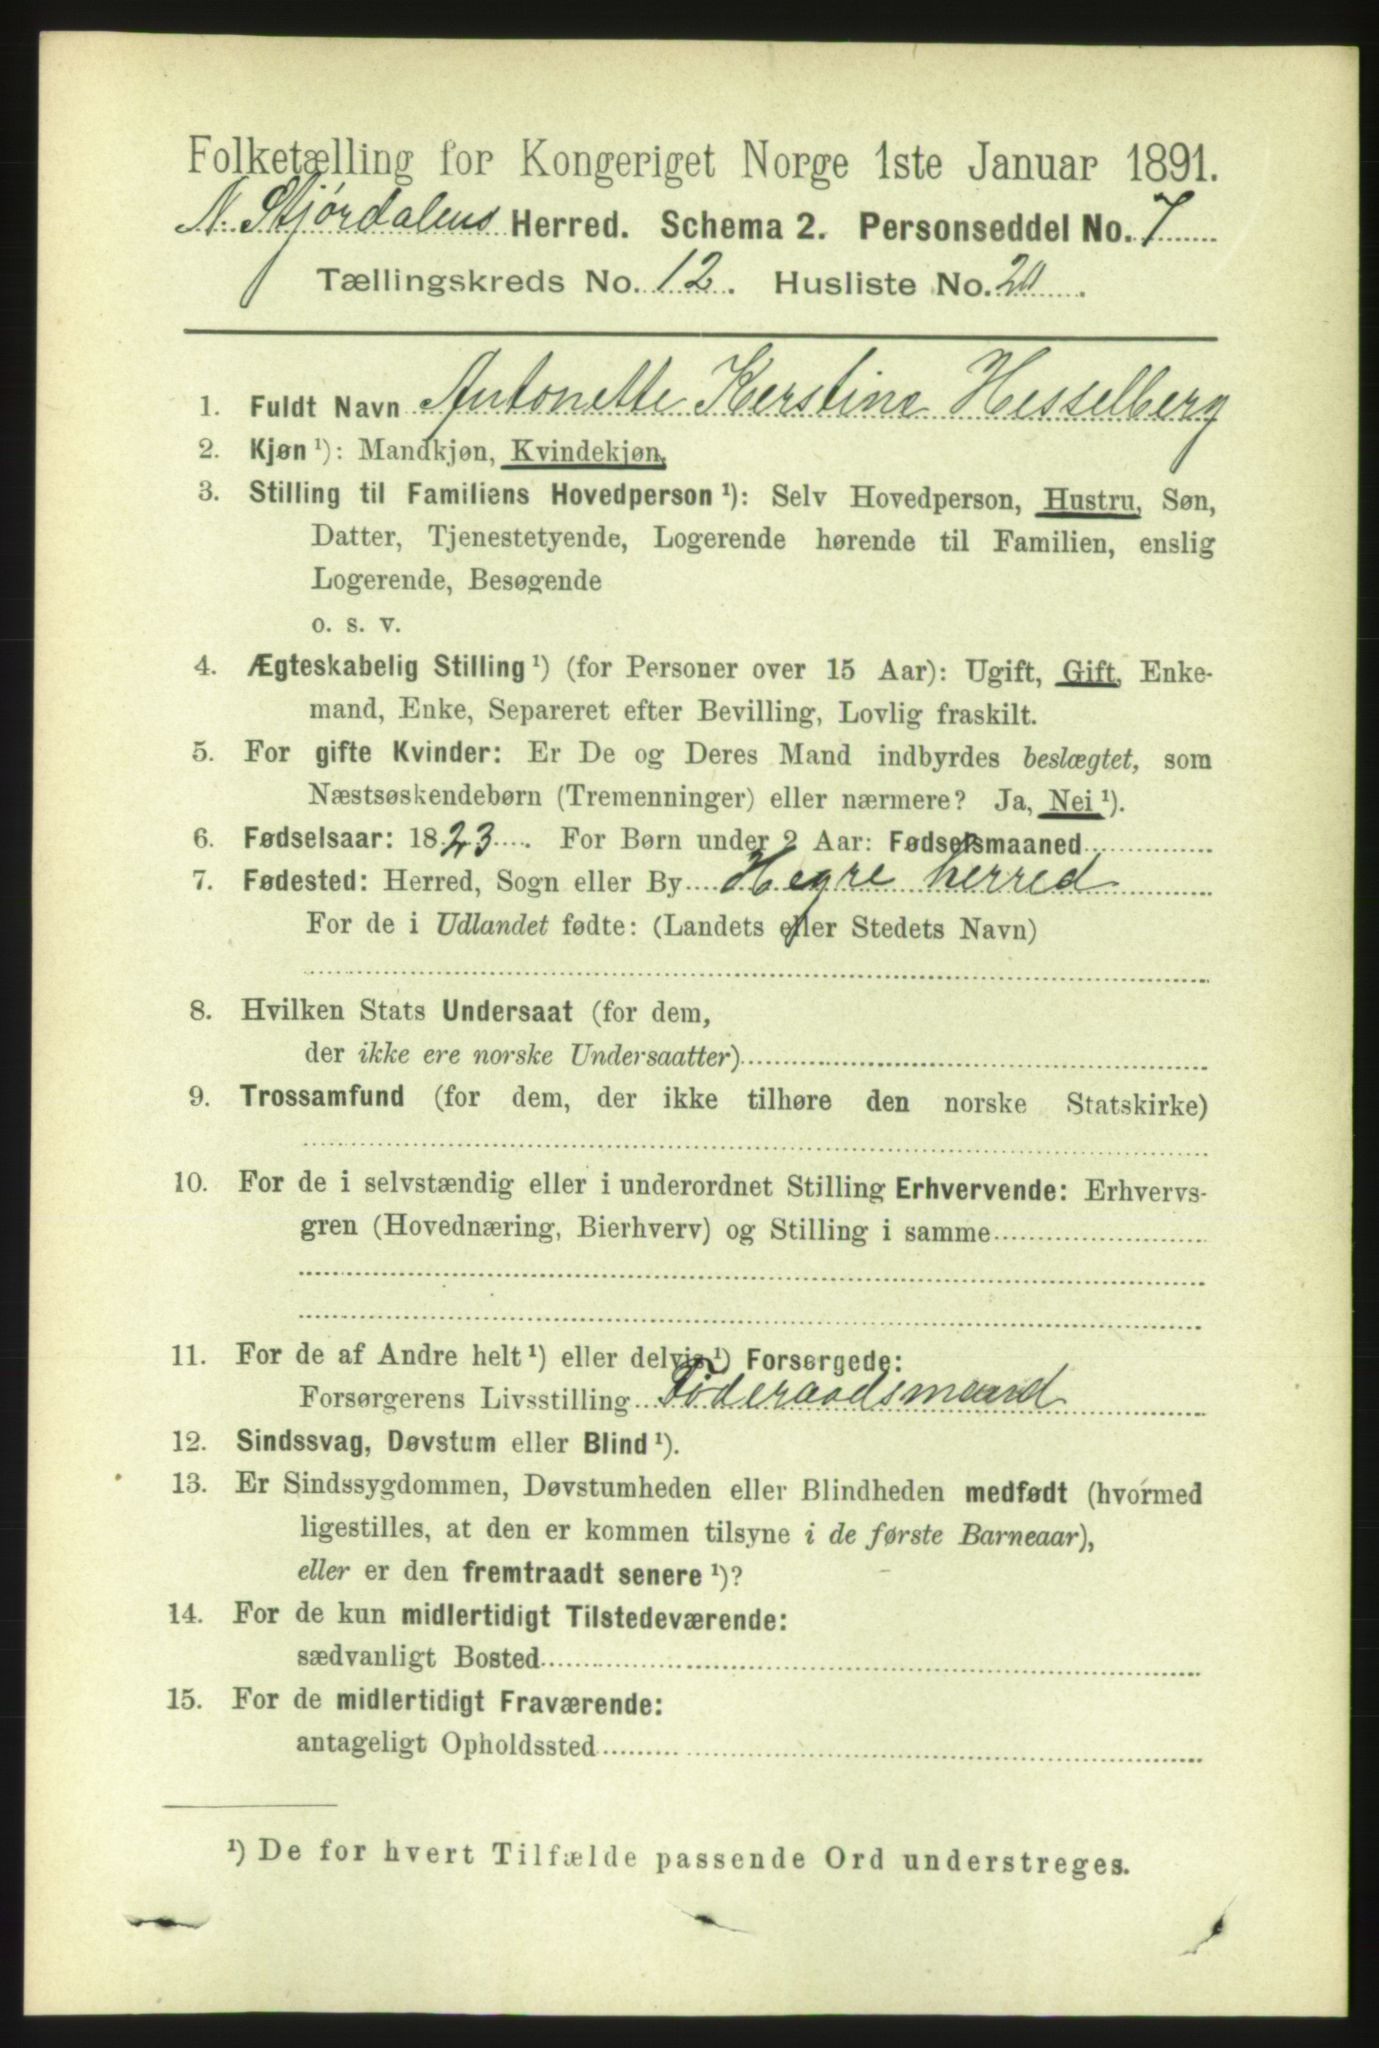 Folketælling for Kongeriget Norge 1ste Januar 1891.
N. Stjørdalens Herred. Schema 2. Personseddel No. 7
Tællingskreds No. 12. Husliste No. 20.
1. Fuldt Navn Antonette Kerstine Hesselberg
2. Kjøn ¹): Mandkjøn, Kvindekjøn.
3. Stilling til Familiens Hovedperson ¹): Selv Hovedperson, Hustru, Søn,
Datter, Tjenestetyende, Logerende hørende til Familien, enslig
Logerende, Besøgende
o. s. v.
4. Ægteskabelig Stilling ¹) (for Personer over 15 Aar): Ugift, Gift, Enke-
mand, Enke, Separeret efter Bevilling, Lovlig fraskilt.
5. For gifte Kvinder: Er De og Deres Mand indbyrdes beslægtet, som
Næstsøskendebørn (Tremenninger) eller nærmere? Ja, Nei ¹).
6. Fødselsaar: 1823. For Børn under 2 Aar: Fødselsmaaned
7. Fødested: Herred, Sogn eller By Hegre herred
For de i Udlandet fødte: (Landets eller Stedets Navn)
8. Hvilken Stats Undersaat (for dem,
der ikke ere norske Undersaatter)
9. Trossamfund (for dem, der ikke tilhøre den norske Statskirke)
10. For de i selvstændig eller i underordnet Stilling Erhvervende: Erhvervs-
gren (Hovednæring, Bierhverv) og Stilling i samme
11. For de af Andre helt ¹) eller delvis ¹) Forsørgede:
Forsørgerens Livsstilling Föderaadsmand
12. Sindssvag, Døvstum eller Blind ¹).
13. Er Sindssygdommen, Døvstumheden eller Blindheden medfødt (hvormed
ligestilles, at den er kommen tilsyne i de første Barneaar),
eller er den fremtraadt senere ¹)?
14. For de kun midlertidigt Tilstedeværende:
sædvanligt Bosted
15. For de midlertidigt Fraværende:
antageligt Opholdssted
¹) De for hvert Tilfælde passende Ord understreges.